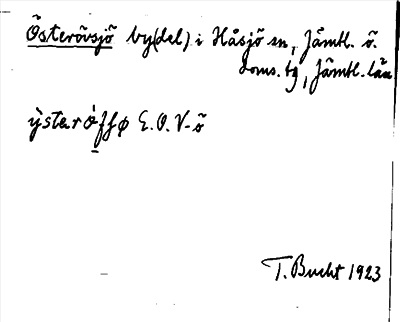 Österövsjö by(del) i Håsjö sn, Jämtl. ö.
doms. tg, Jämtl. län
ÿstaröffø E.O.V-ö
T. Bucht 1923